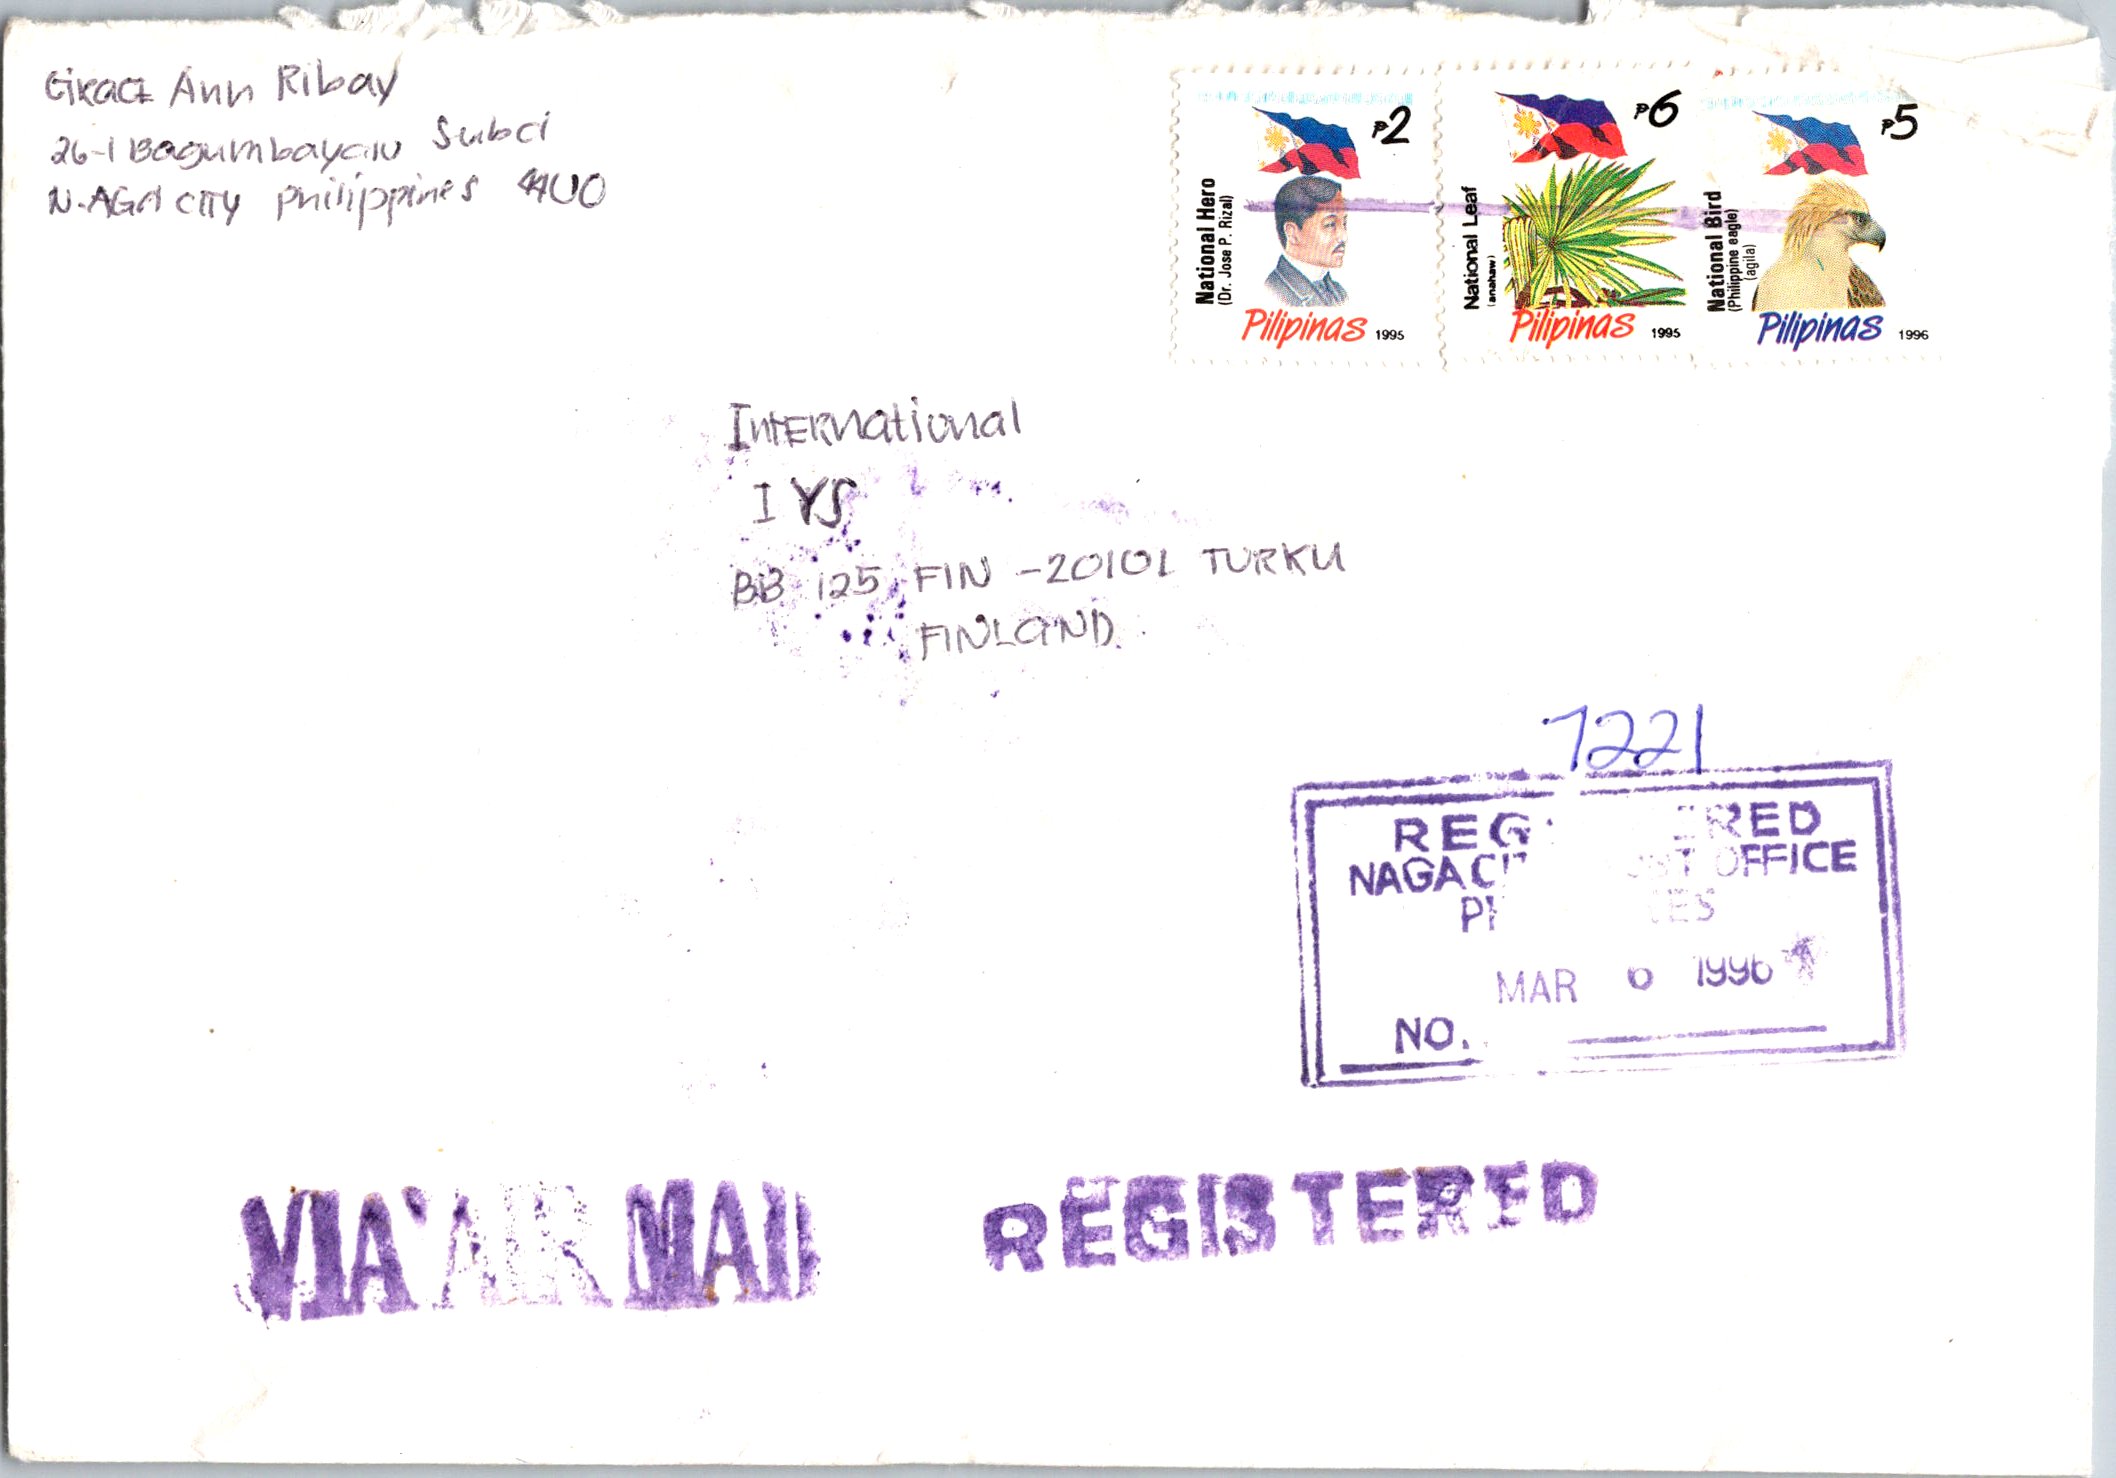 Grace Ann Ribay
26-1 Bagumbayan Subd
NAGA CITY Philippines 4400
₱2
National Hero
(Dr. Jose P. Rizal)
Pilipinas 1995
₱6
National Leaf
(anahaw)
Pilipinas 1995
₱5
National Bird
(Philippine eagle)
(agila)
Pilipinas 1996
International
IYS
BB 125 FIN-20101 TURKU
FINLAND
7221
REG RED
NAGA CIT OFFICE
MAR 6 1996
NO.
VIA AIR MAIL
REGISTERED